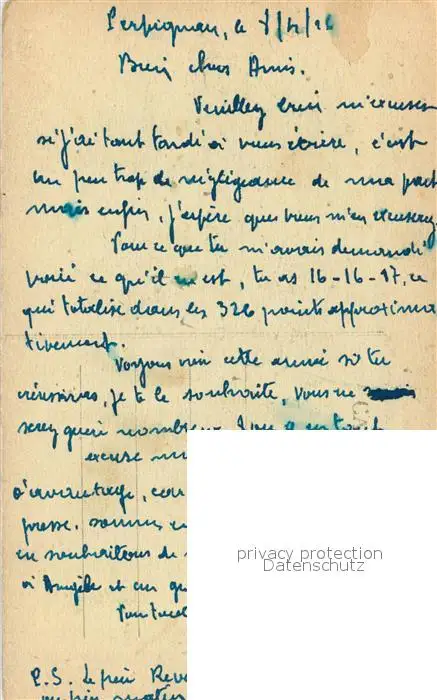 Perpignan, le
Bien chers Amis.
Veuillez bien m'excuser
si j'ai tant tardé à vous écrire, c'est
un peu trop de négligeance de ma part
mais enfin, j'espère que vous m'en excuserez.
Pour ce que tu m'avais demandé
voici ce qu'il en est, tu as 16-16-17, ce
qui totalise dans les 326 points approxima
tivement.
Voyons voir cette année si tu
réussiras, je te le souhaite, vous ne
serez guère
excuse
d'avantage, car
presse. sommes
en souhaitons de
à Angèle et
P.S. Le père
privacy protection
Datenschutz